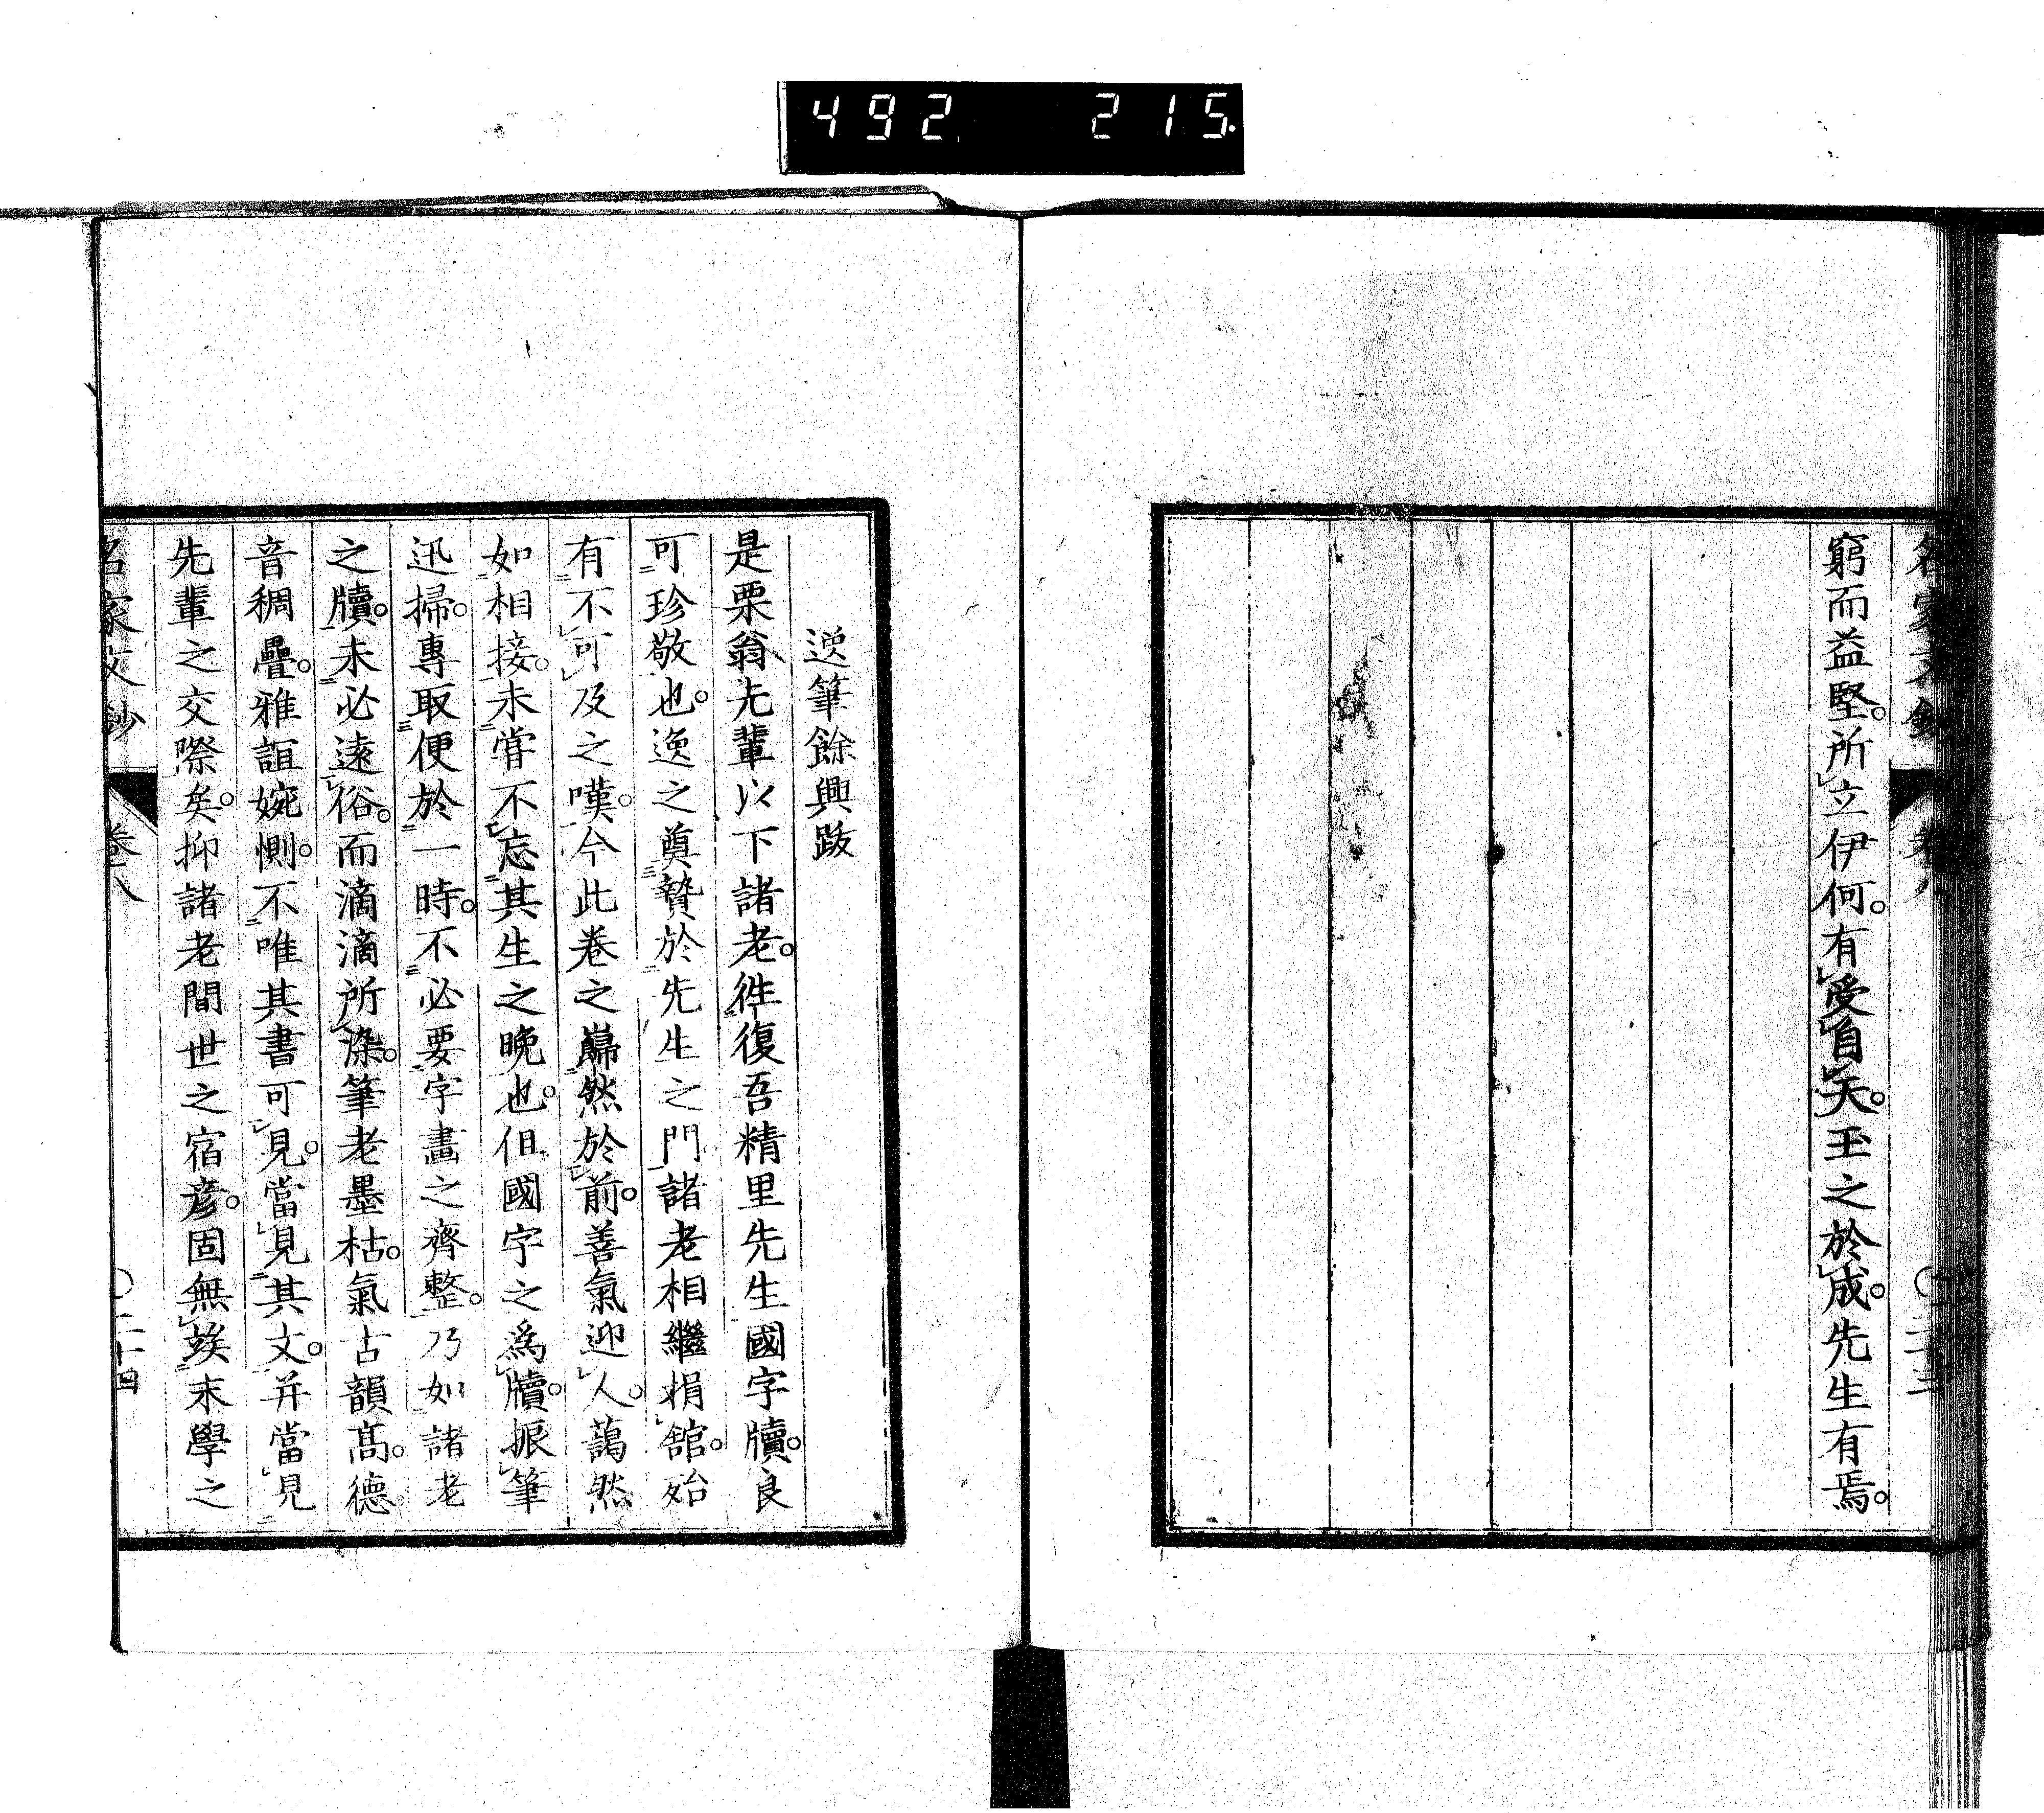 492 215
名家文鈔 卷八 〇二十三
窮而益堅。所立伊何。有受自天。玉之於成。先生有焉。
逆筆餘興跋
是栗翁先輩以下諸老。徃復吾精里先生國字牘。良
可珍敬也。逸之奠贄於先生之門諸老相繼捐舘。殆
有不可及之嘆。今此卷之巋然於前。善氣迎人。藹然
如相接。未嘗不忘其生之晚也。但國字之爲牘。振筆
迅掃。專取便於一時。不必要字畫之齊整。乃如諸老
之牘。未必遠俗。而滴滴所染。筆老墨枯。氣古韻高。德
音稠疊。雅誼婉惻。不唯其書可見。當見其文。并當見
先輩之交際矣。抑諸老間世之宿彥。固無竢末學之
名家文鈔 卷八 〇二十四